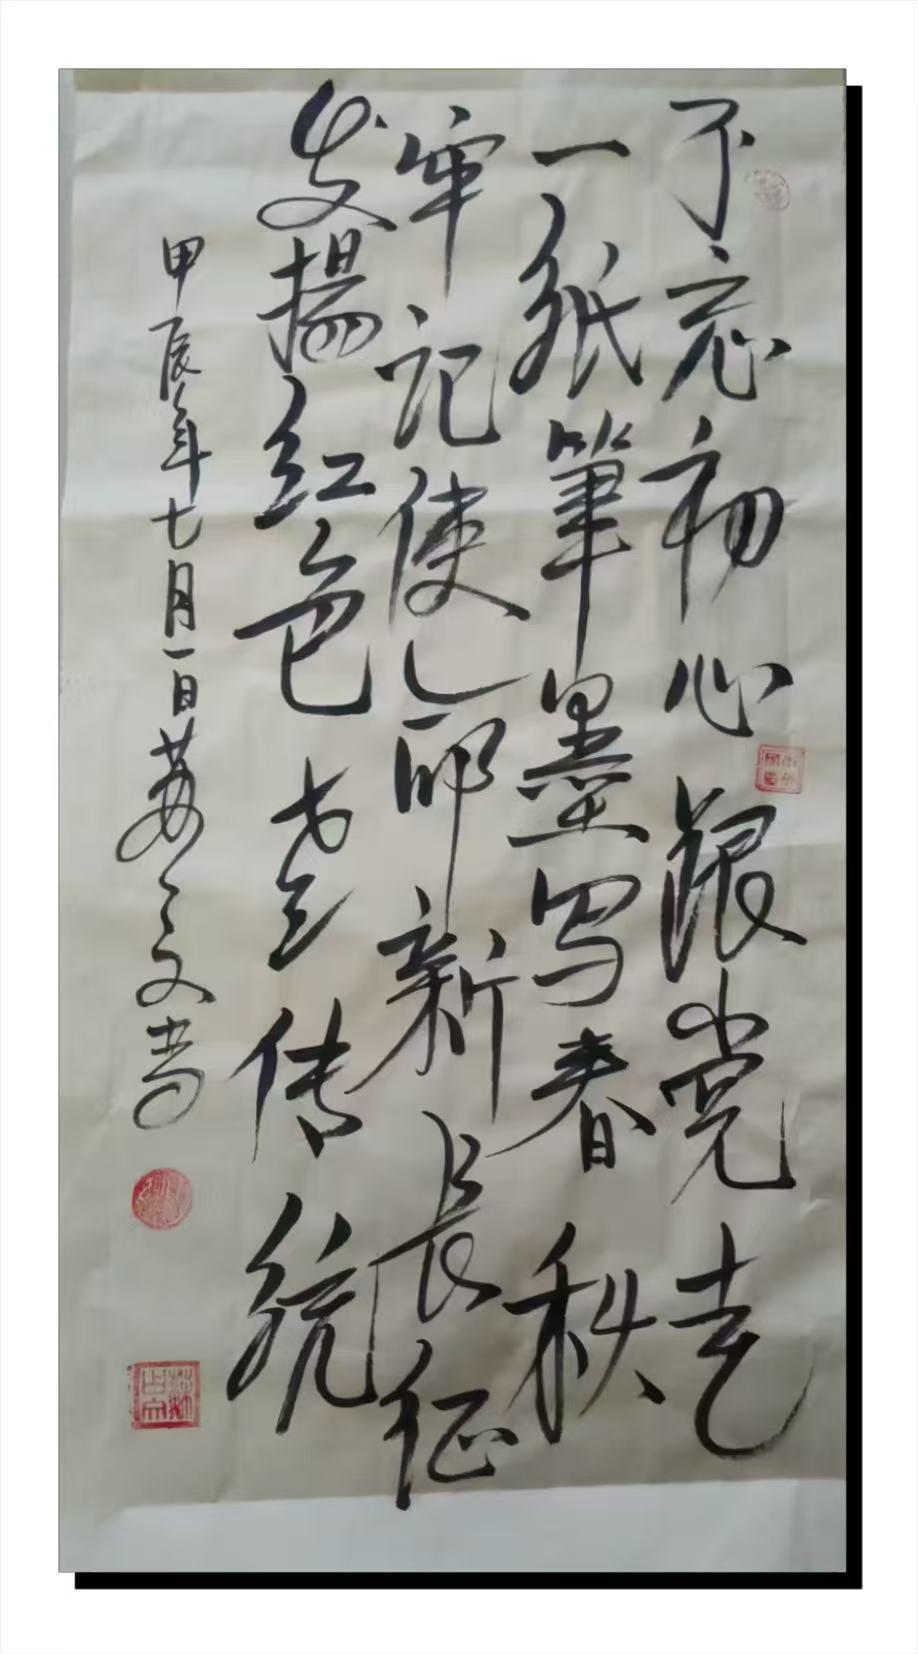 不忘初心跟党走
一纸筆墨写春秋
牢记使命新長征
发揚红色老传统
甲辰年七月一日